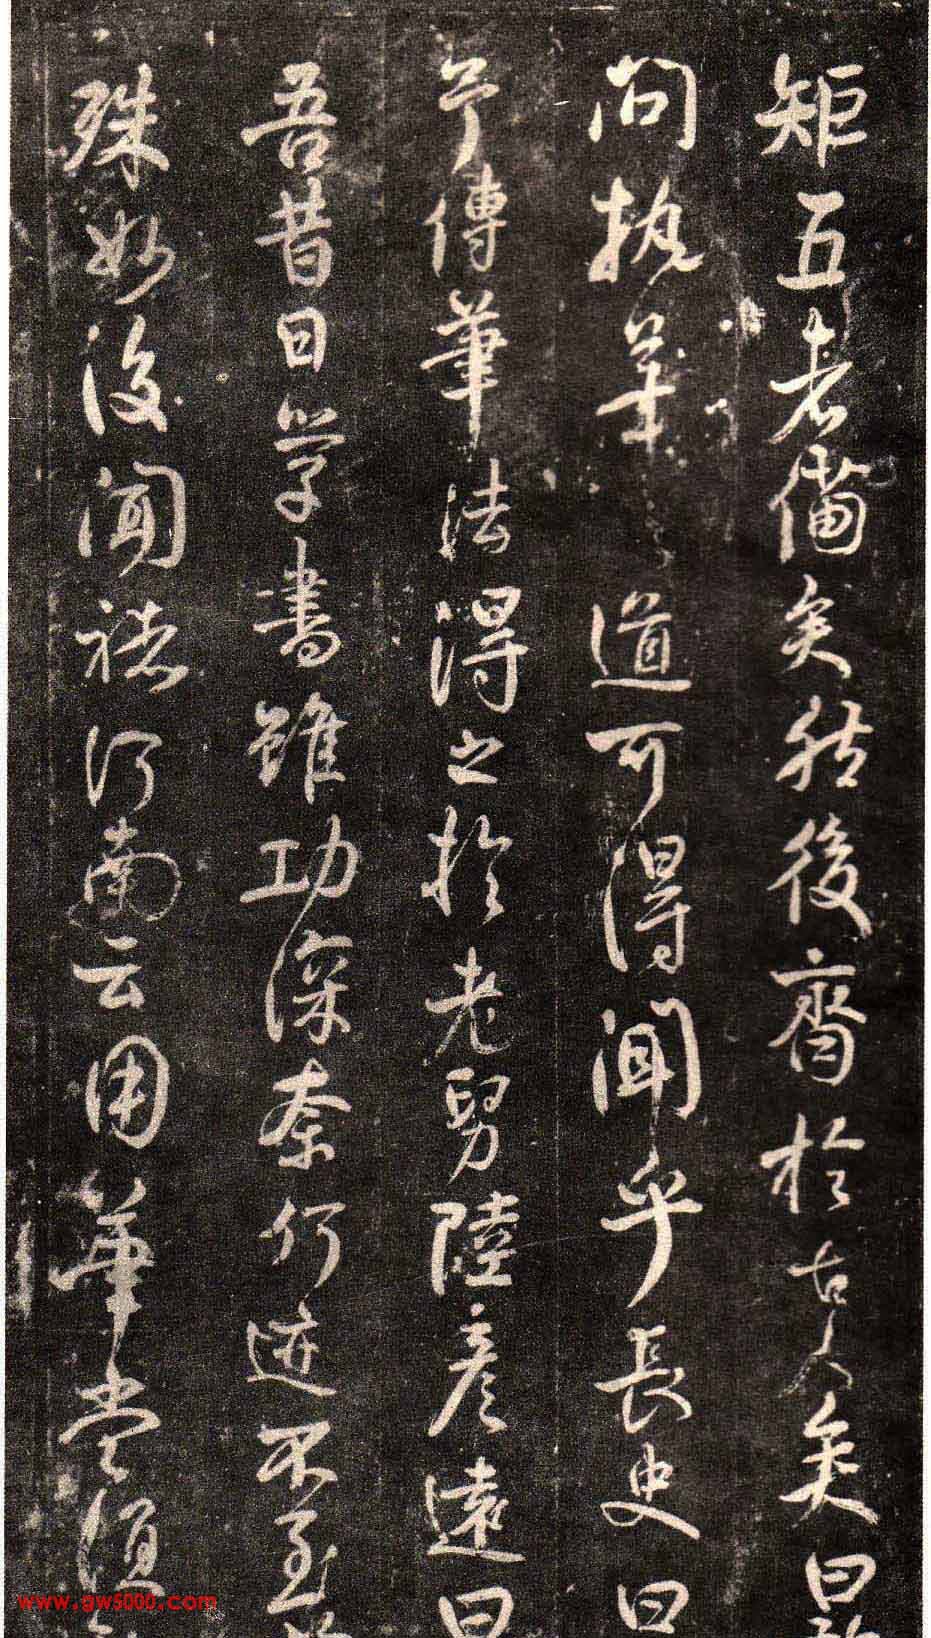 矩五者備矣然後齊於古人矣曰
問執筆道可得聞乎長史曰
予傳筆法得之於老舅陸彥遠曰
吾昔日學書雖功深奈何迹不至
殊妙後聞褚河南云用筆當須
www.aw5000.com